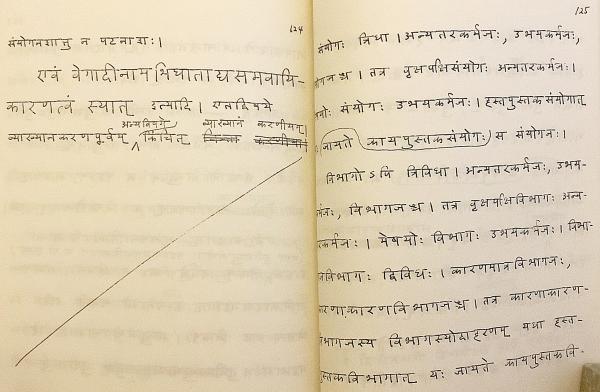 124
संयोगनाशात्तु न पटनाशः।
एवं वेगादीनामभिघाताद्यसमवायि-
कारणत्वं स्यात् इत्यादि। एतद्विषये
अन्यविषये व्याख्यानं करणीयम्
व्याख्यानकरणपूर्वम् किंचित्
125
संयोगः त्रिधा। अन्यतरकर्मजः, उभयकर्मजः,
तत्र वृक्षपक्षिसंयोगः अन्यतरकर्मजः।
संयोगः उभयकर्मजः। हस्तपुस्तकसंयोगात्
जायते कायपुस्तकसंयोगः स संयोगजः।
विभागोऽपि त्रिविधः। अन्यतरकर्मजः, उभय-
विभागजश्च। तत्र वृक्षपक्षिविभागः अन्य-
तरकर्मजः। मेषयोः विभागः उभयकर्मजः। विभा-
गजविभागः द्विविधः। कारणमात्रविभागजः,
कारणाकारणविभागजश्च। तत्र कारणाकारण-
विभागजस्य विभागस्योदाहरणम् यथा हस्त-
पुस्तकविभागात् यः जायते कायपुस्तकवि-